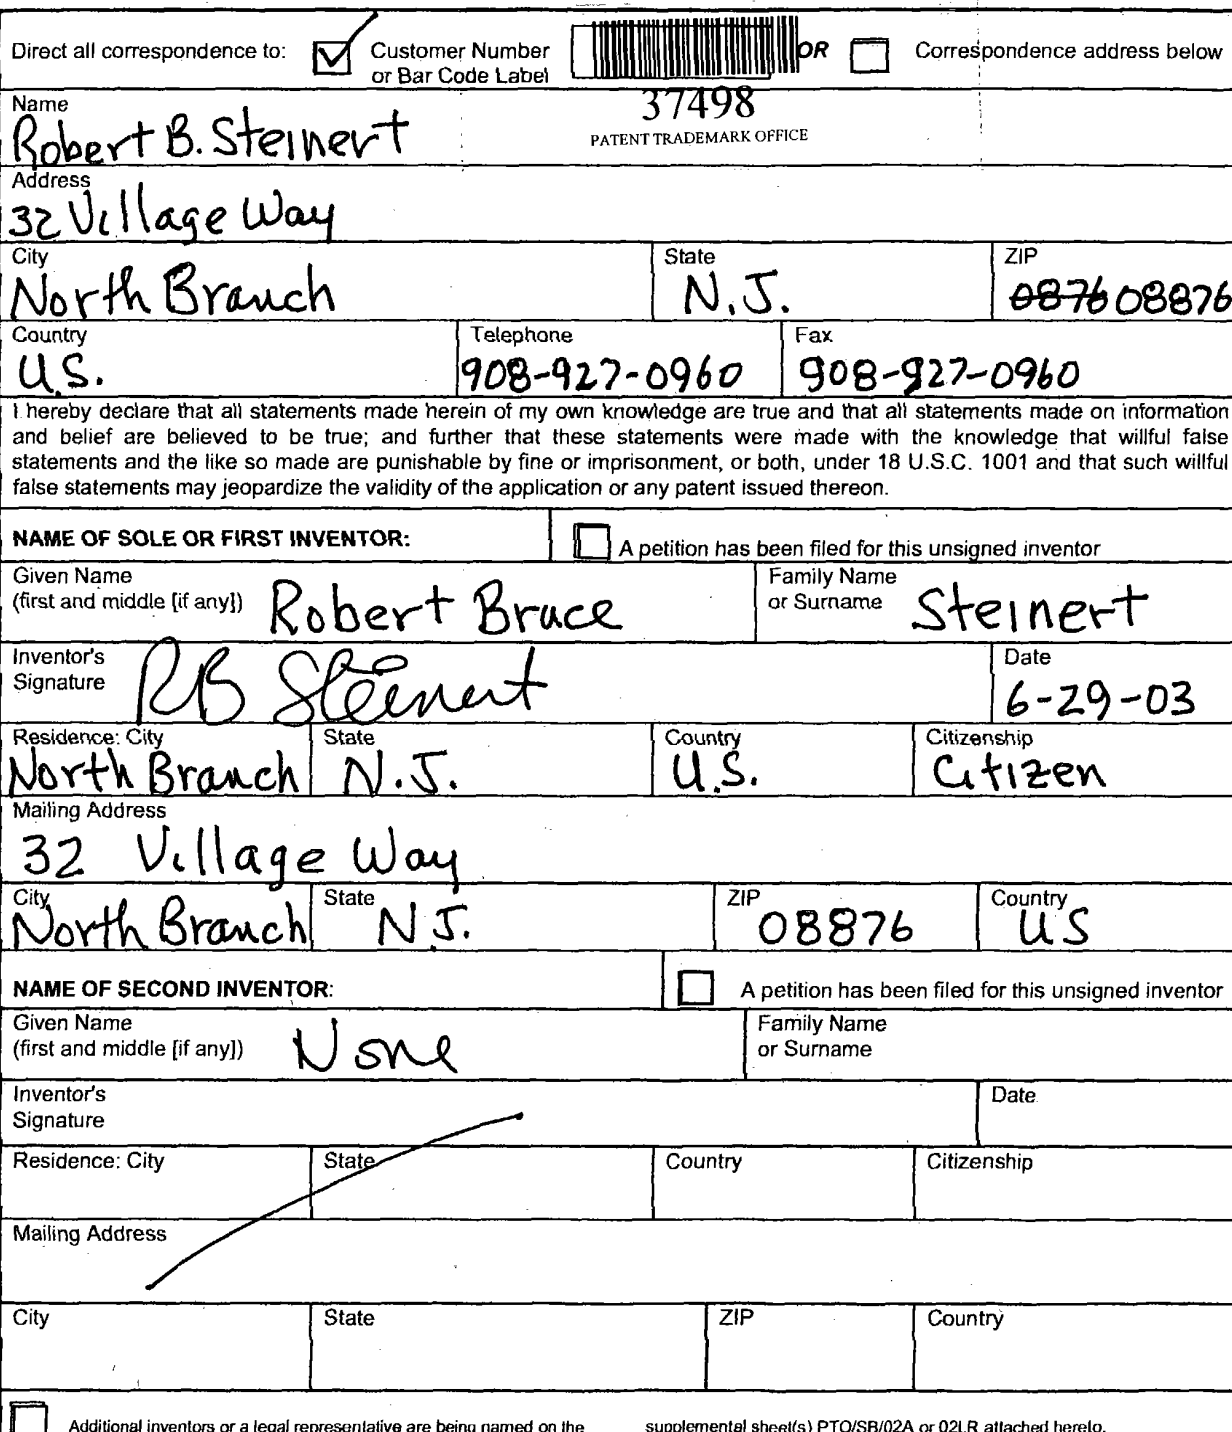 Direct all correspondence to: Customer Number or Bar Code Label OR Correspondence address below
37498
PATENT TRADEMARK OFFICE
Name
Robert B. Steinert
Address
32 Village Way
City State ZIP
North Branch N.J. 0876 08876
Country Telephone Fax
U.S. 908-927-0960 908-927-0960
I hereby declare that all statements made herein of my own knowledge are true and that all statements made on information
and belief are believed to be true; and further that these statements were made with the knowledge that willful false
statements and the like so made are punishable by fine or imprisonment, or both, under 18 U.S.C. 1001 and that such willful
false statements may jeopardize the validity of the application or any patent issued thereon.
NAME OF SOLE OR FIRST INVENTOR: A petition has been filed for this unsigned inventor
Given Name
(first and middle [if any]) Robert Bruce
Family Name
or Surname Steinert
Inventor's
Signature RB Steinert
Date
6-29-03
Residence: City State Country Citizenship
North Branch N.J. U.S. Citizen
Mailing Address
32 Village Way
City State ZIP Country
North Branch NJ. 08876 US
NAME OF SECOND INVENTOR: A petition has been filed for this unsigned inventor
Given Name
(first and middle [if any]) None
Family Name
or Surname
Inventor's
Signature
Date
Residence: City State Country Citizenship
Mailing Address
City State ZIP Country
Additional inventors or a legal representative are being named on the supplemental sheet(s) PTO/SB/02A or 02LR attached hereto.